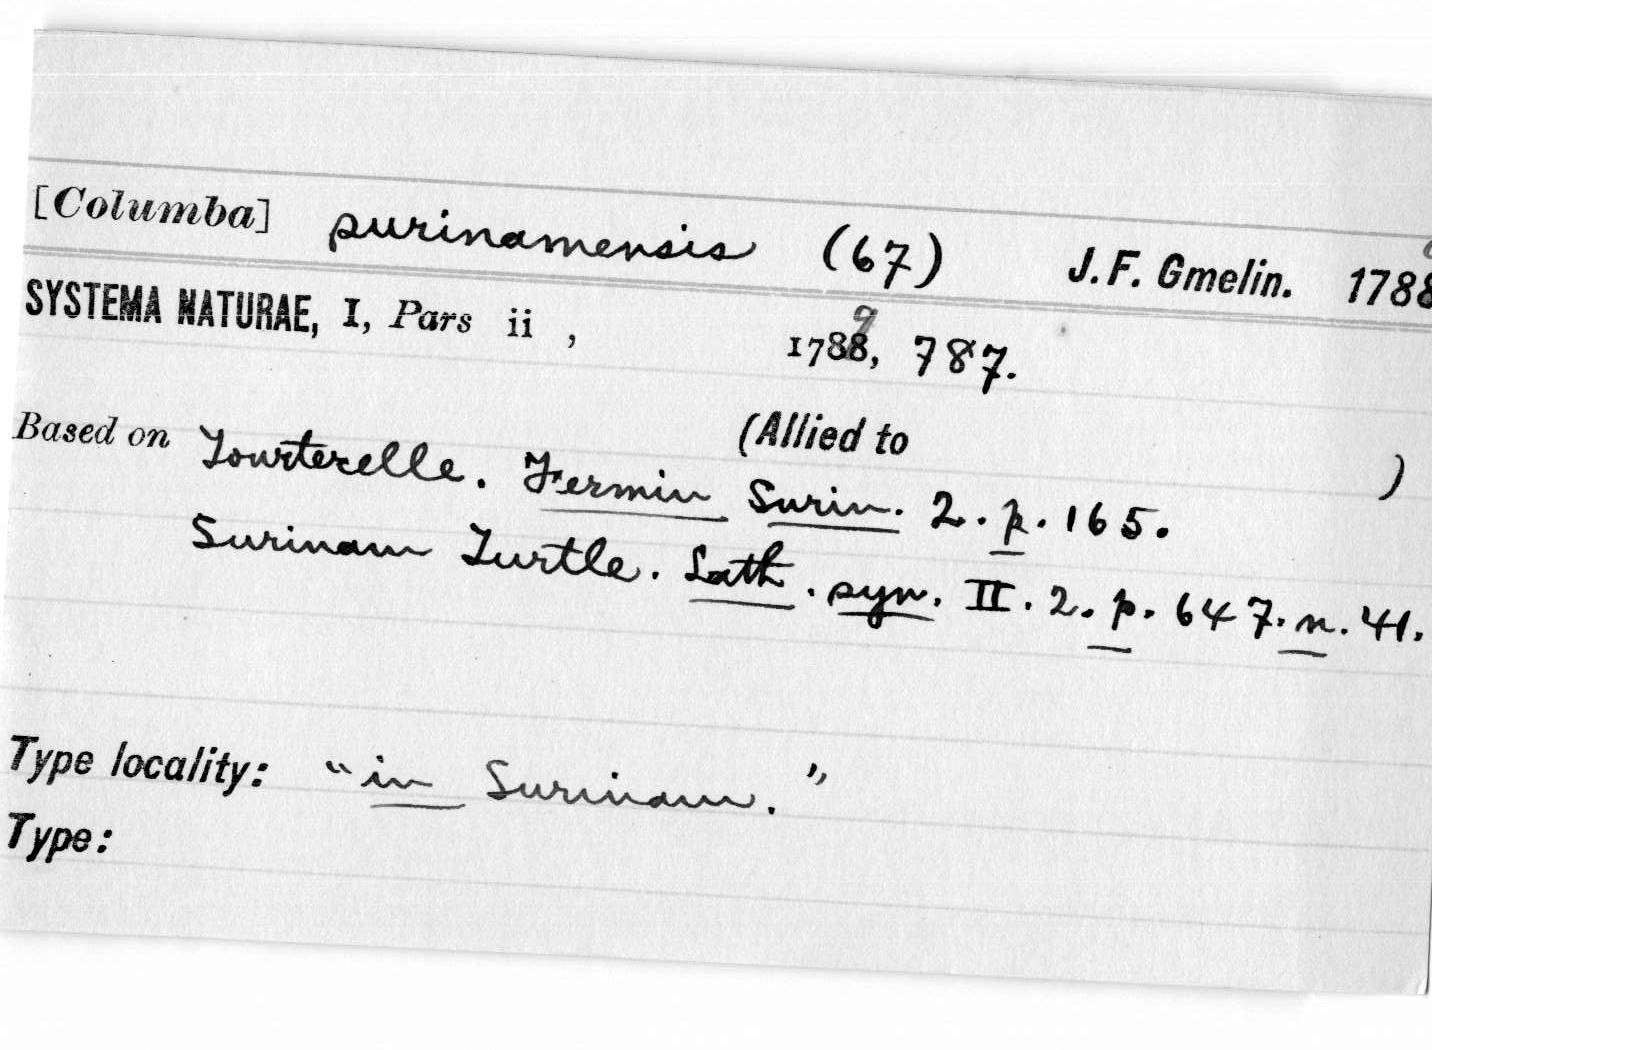 [Columba] surinamensis (67) J.F. Gmelin. 1788
SYSTEMA NATURAE, I, Pars ii , 1788, 787.
9
(Allied to )
Based on Tourterelle. Fermin Surin. 2. p. 165.
Surinam Turtle. Lath. syn. II. 2. p. 647. n. 41.
Type locality: "in Surinam."
Type: